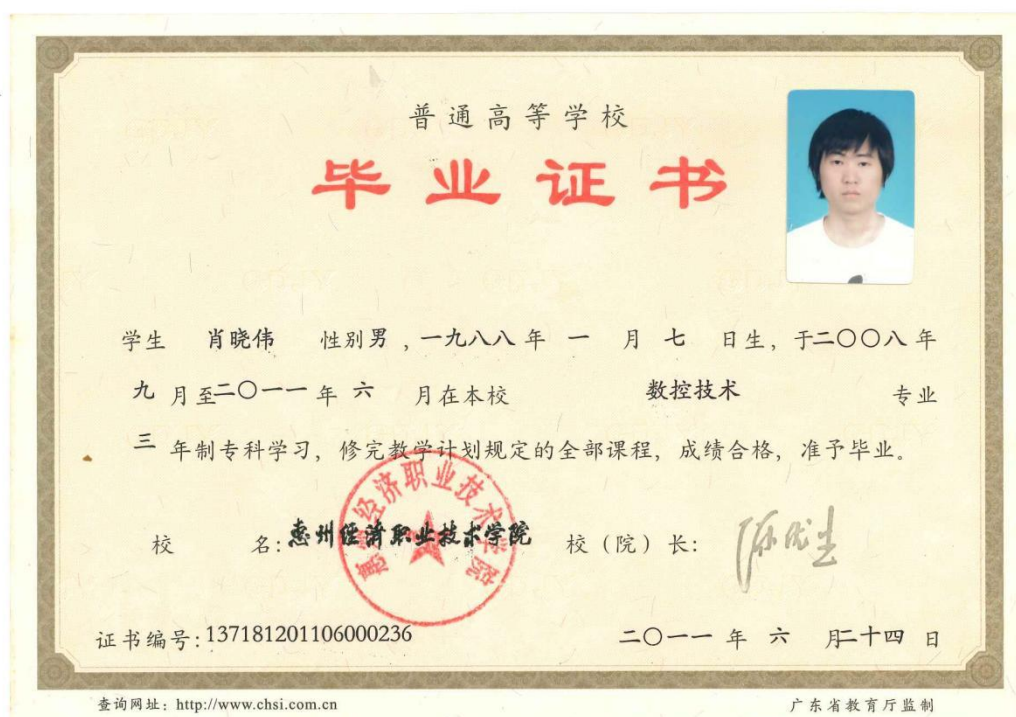 普通高等学校
毕业证书
学生 肖晓伟 性别男,一九八八年 一 月 七 日生,于二〇〇八年
九月至二〇一一年 六 月在本校 数控技术 专业
三 年制专科学习,修完教学计划规定的全部课程,成绩合格,准予毕业。
校 名:惠州经济职业技术学院 校(院)长:
惠州经济职业技术学院
证书编号:137181201106000236 二〇一一 年 六 月二十四 日
查询网址:http://www.chsi.com.cn 广东省教育厅监制